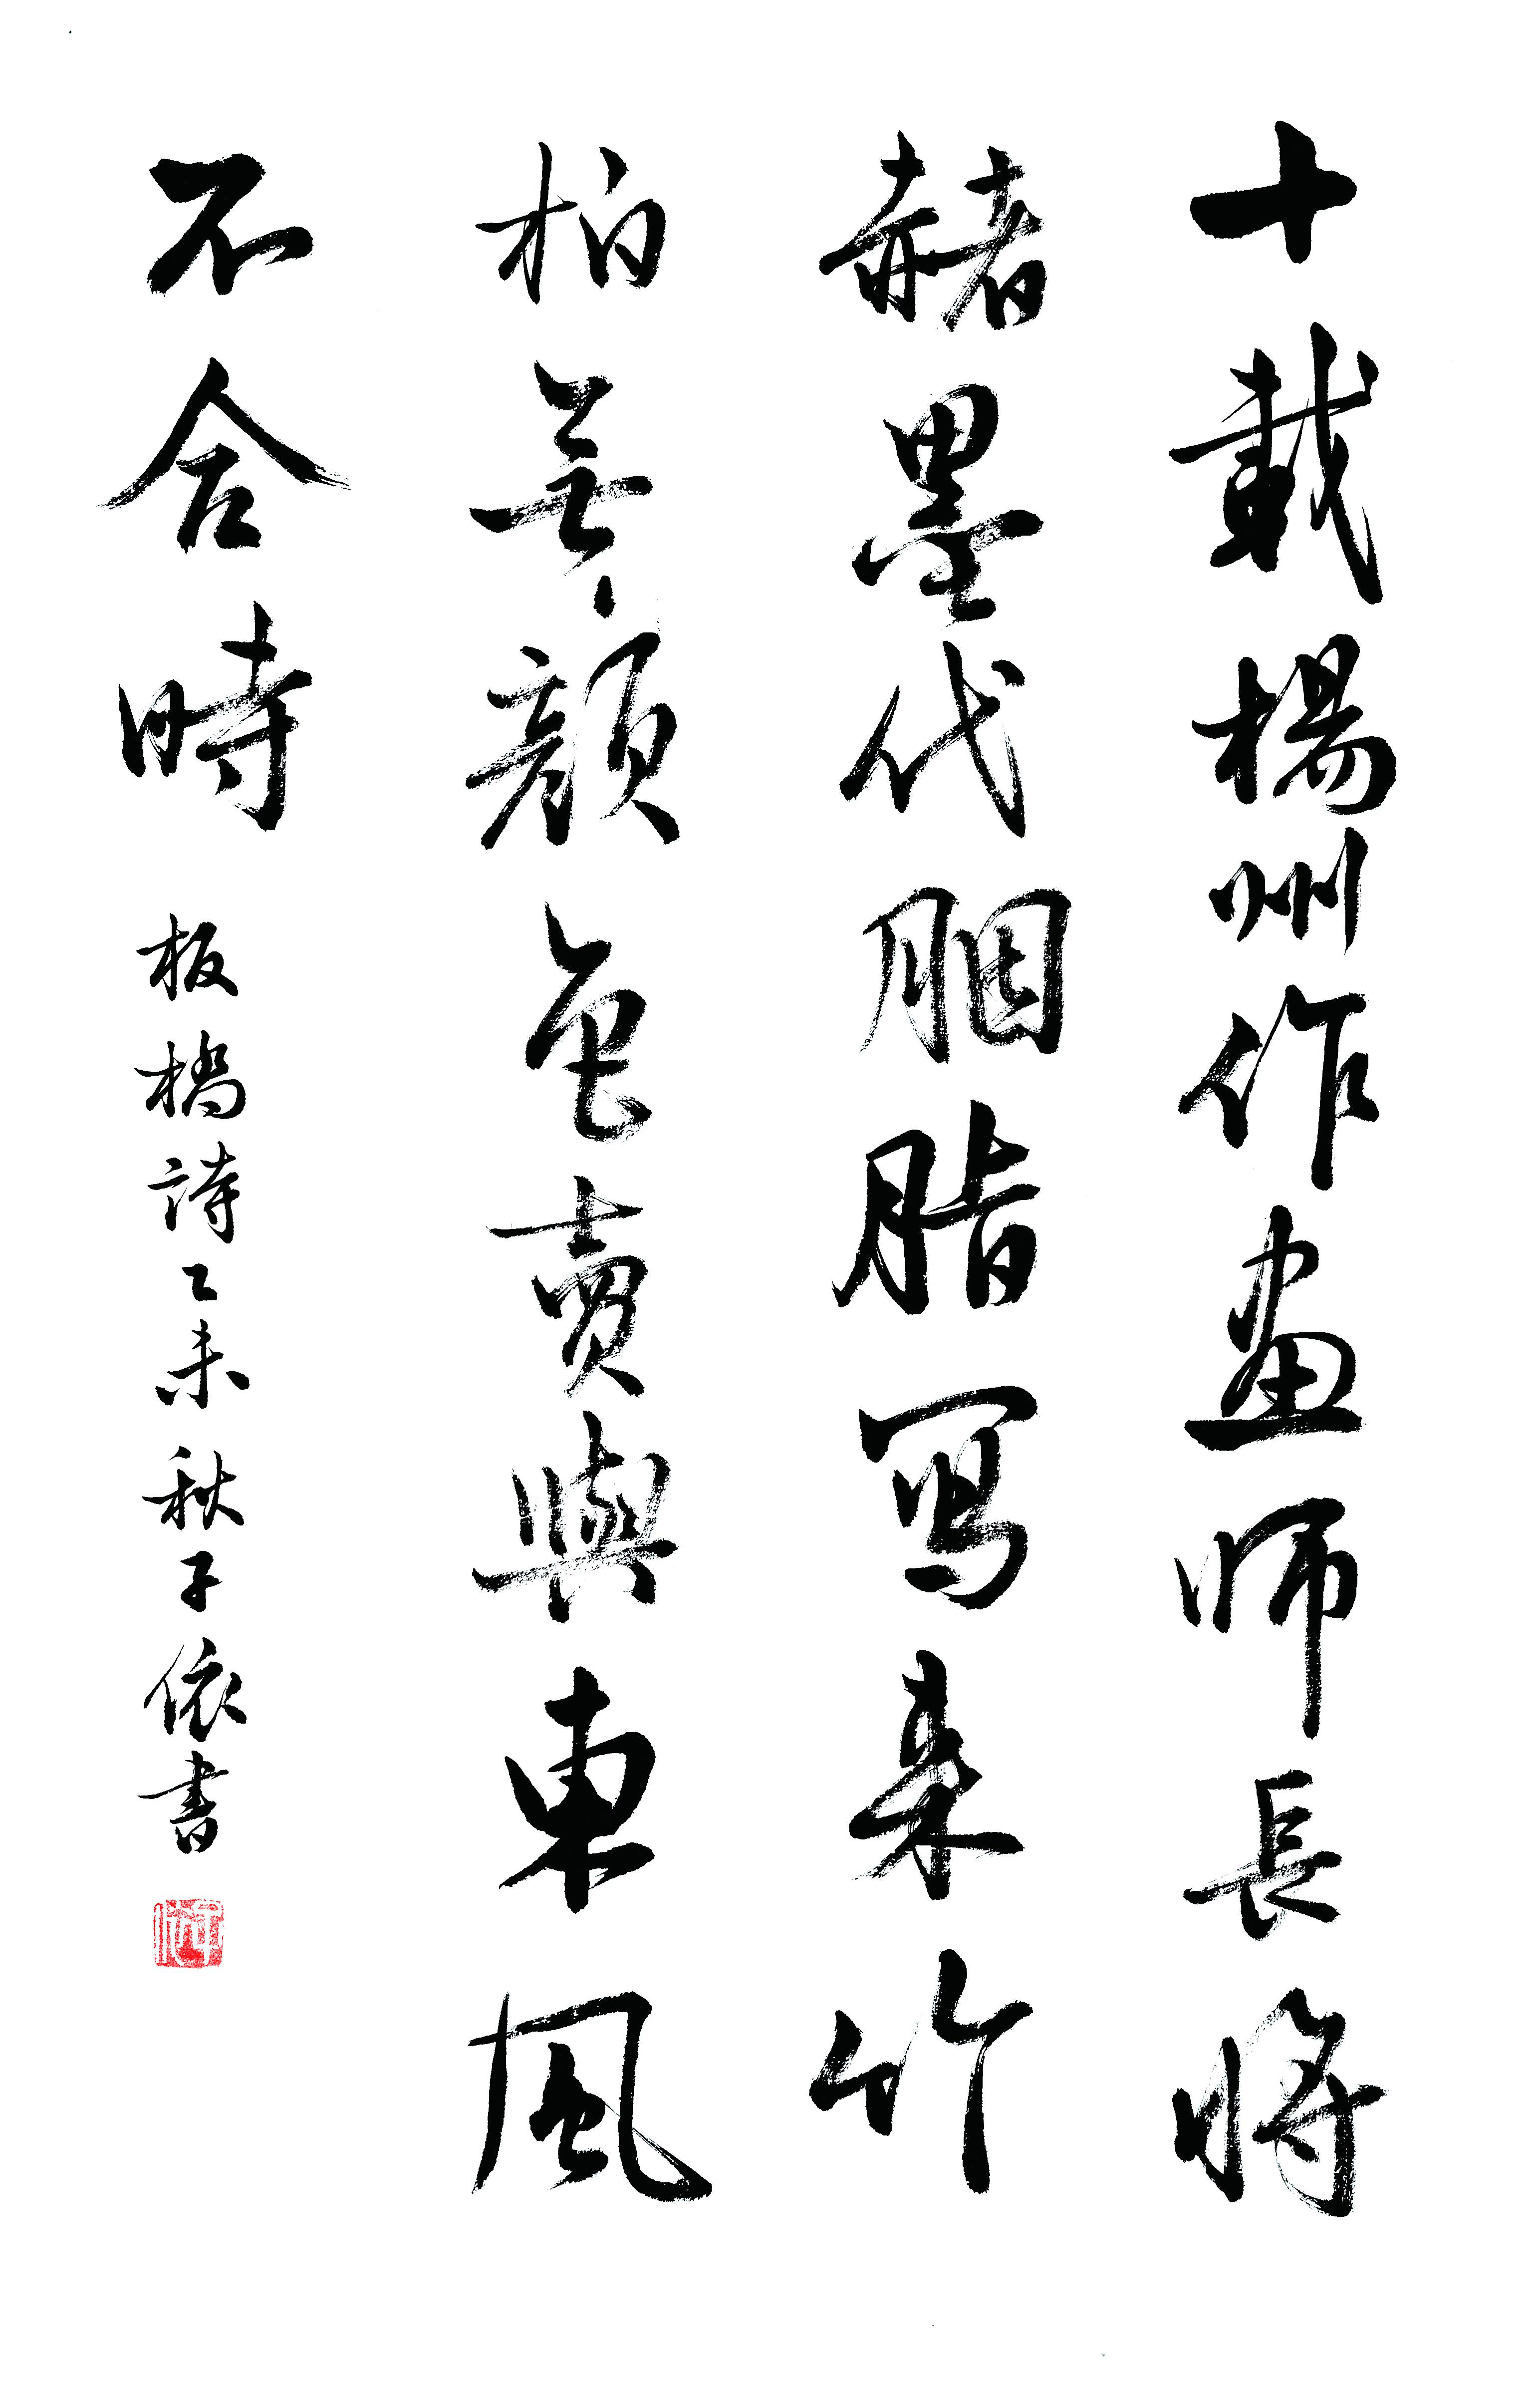 十載楊州作画师長將
赭墨代胭脂寫来竹
柏無顔色賣與東風
不合時
板橋詩乙未秋子依書